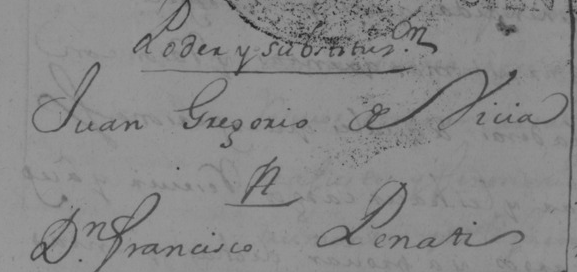 Poder y substitus.on
Juan Gregorio de Vicia
A
D.n Francisco Penati